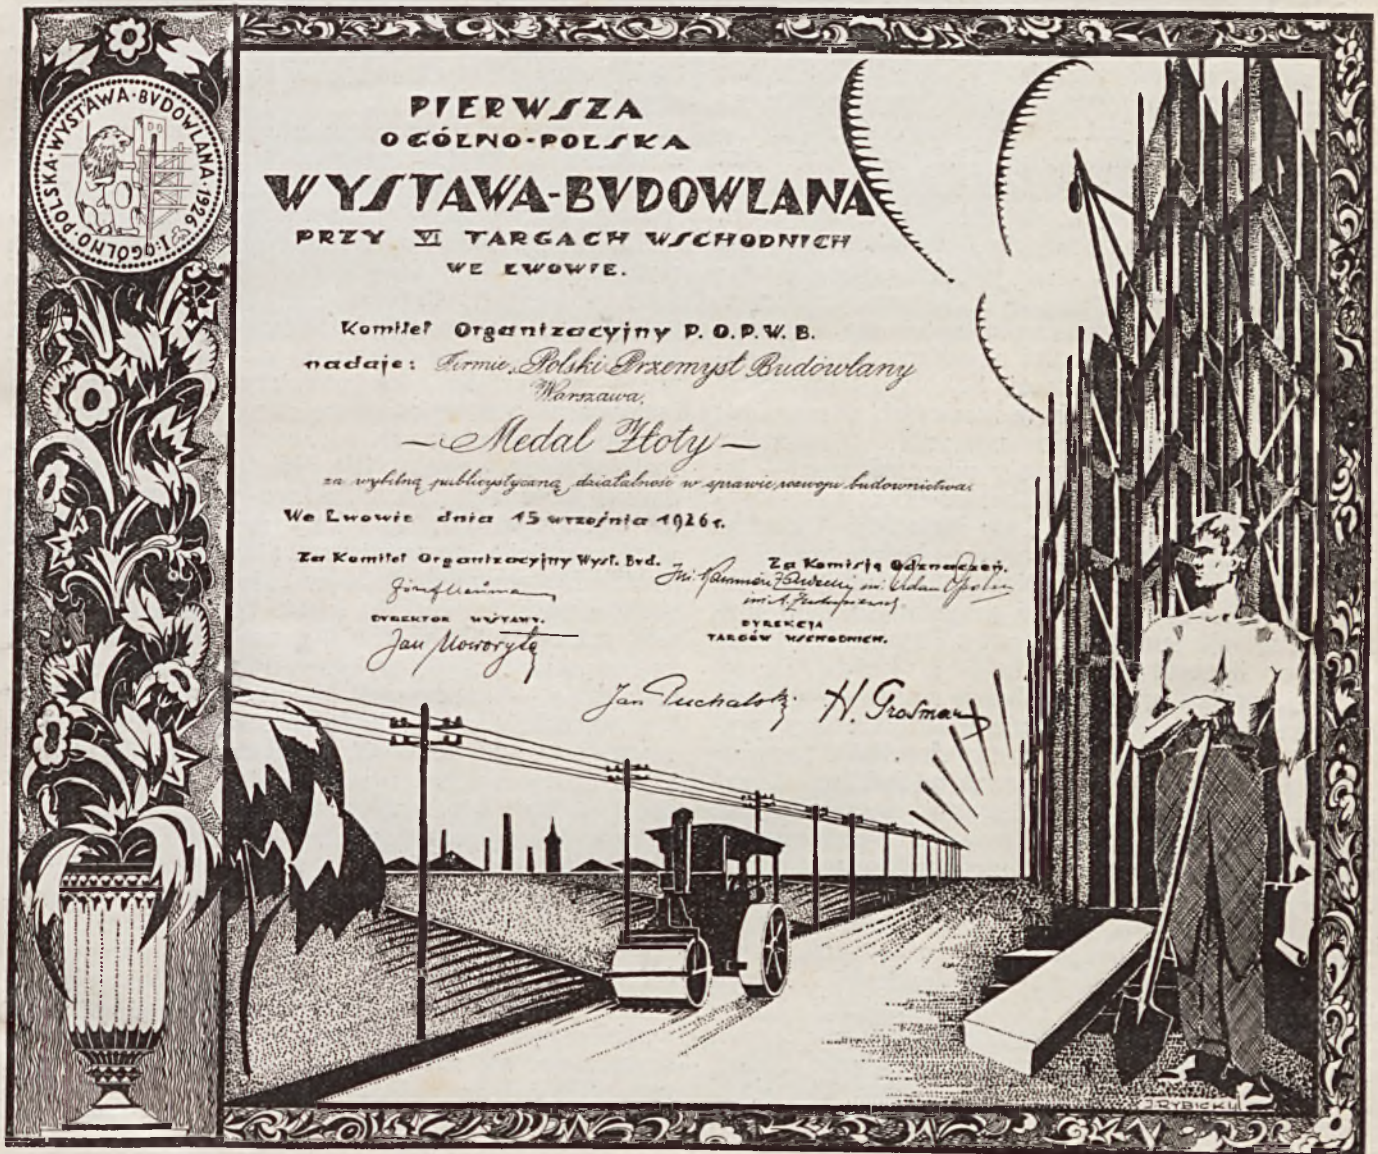 I·OGÓLNO·POLSKA·WYSTAWA·BVDOWLANA·1926
PIERWSZA
OGÓLNO-POLSKA
WYSTAWA-BVDOWLANA
PRZY VI TARGACH WSCHODNICH
WE LWOWIE.
Komitet Organizacyjny P.O.P.W.B.
nadaje: Firmie „Polski Przemysł Budowlany
Warszawa.
— Medal Złoty —
za wybitną publicystyczną działalność w sprawie rozwoju budownictwa.
We Lwowie dnia 15 września 1926 r.
Za Komitet Organizacyjny Wyst. Bvd.
Za Komisję Odznaczeń.
DYREKTOR WYSTAWY.
Jan Noworyta
DYREKCJA
TARGÓW WSCHODNICH.
Jan Puchalski H. Grosman
J RYBICKI